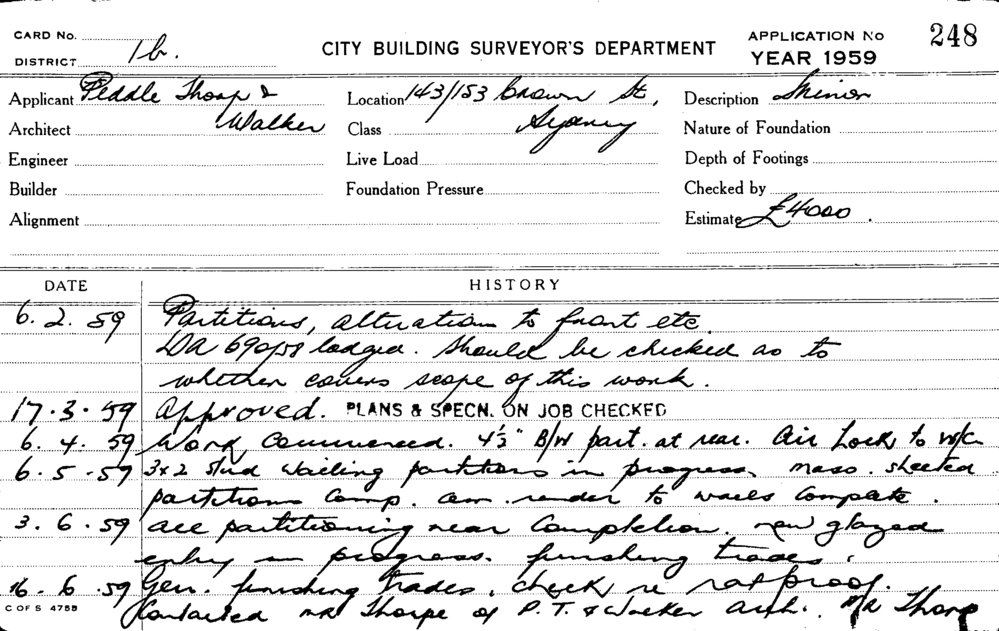 CARD No.
DISTRICT 1b.
CITY BUILDING SURVEYOR'S DEPARTMENT
APPLICATION No 248
YEAR 1959
Applicant Peddle Thorp &
Walker
Location 143/153 Crown St,
Sydney
Description Minor
Architect
Class
Nature of Foundation
Engineer
Live Load
Depth of Footings
Builder
Foundation Pressure
Checked by
Alignment
Estimate £4000.
DATE HISTORY
6.2.59 Partitions, alteration to front etc.
DA lodged. Should be checked as to
whether covers scope of this work.
17.3.59 Approved. PLANS & SPECN. ON JOB CHECKED
6.4.59 Work Commenced. 4½" B/W part. at rear. Air Lock to W/C
6.5.59 3x2 stud walling partitions in progress. Maso. sheeted
partitions Comp. cem. render to walls Complete.
3.6.59 all partitioning near Completion. new glazed
entry in progress. finishing trades.
16.6.59 Gen. finishing trades. check re ratproof.
Contacted MR Thorpe of P.T. & Walker Arch. MR Thorp
C OF S 4755